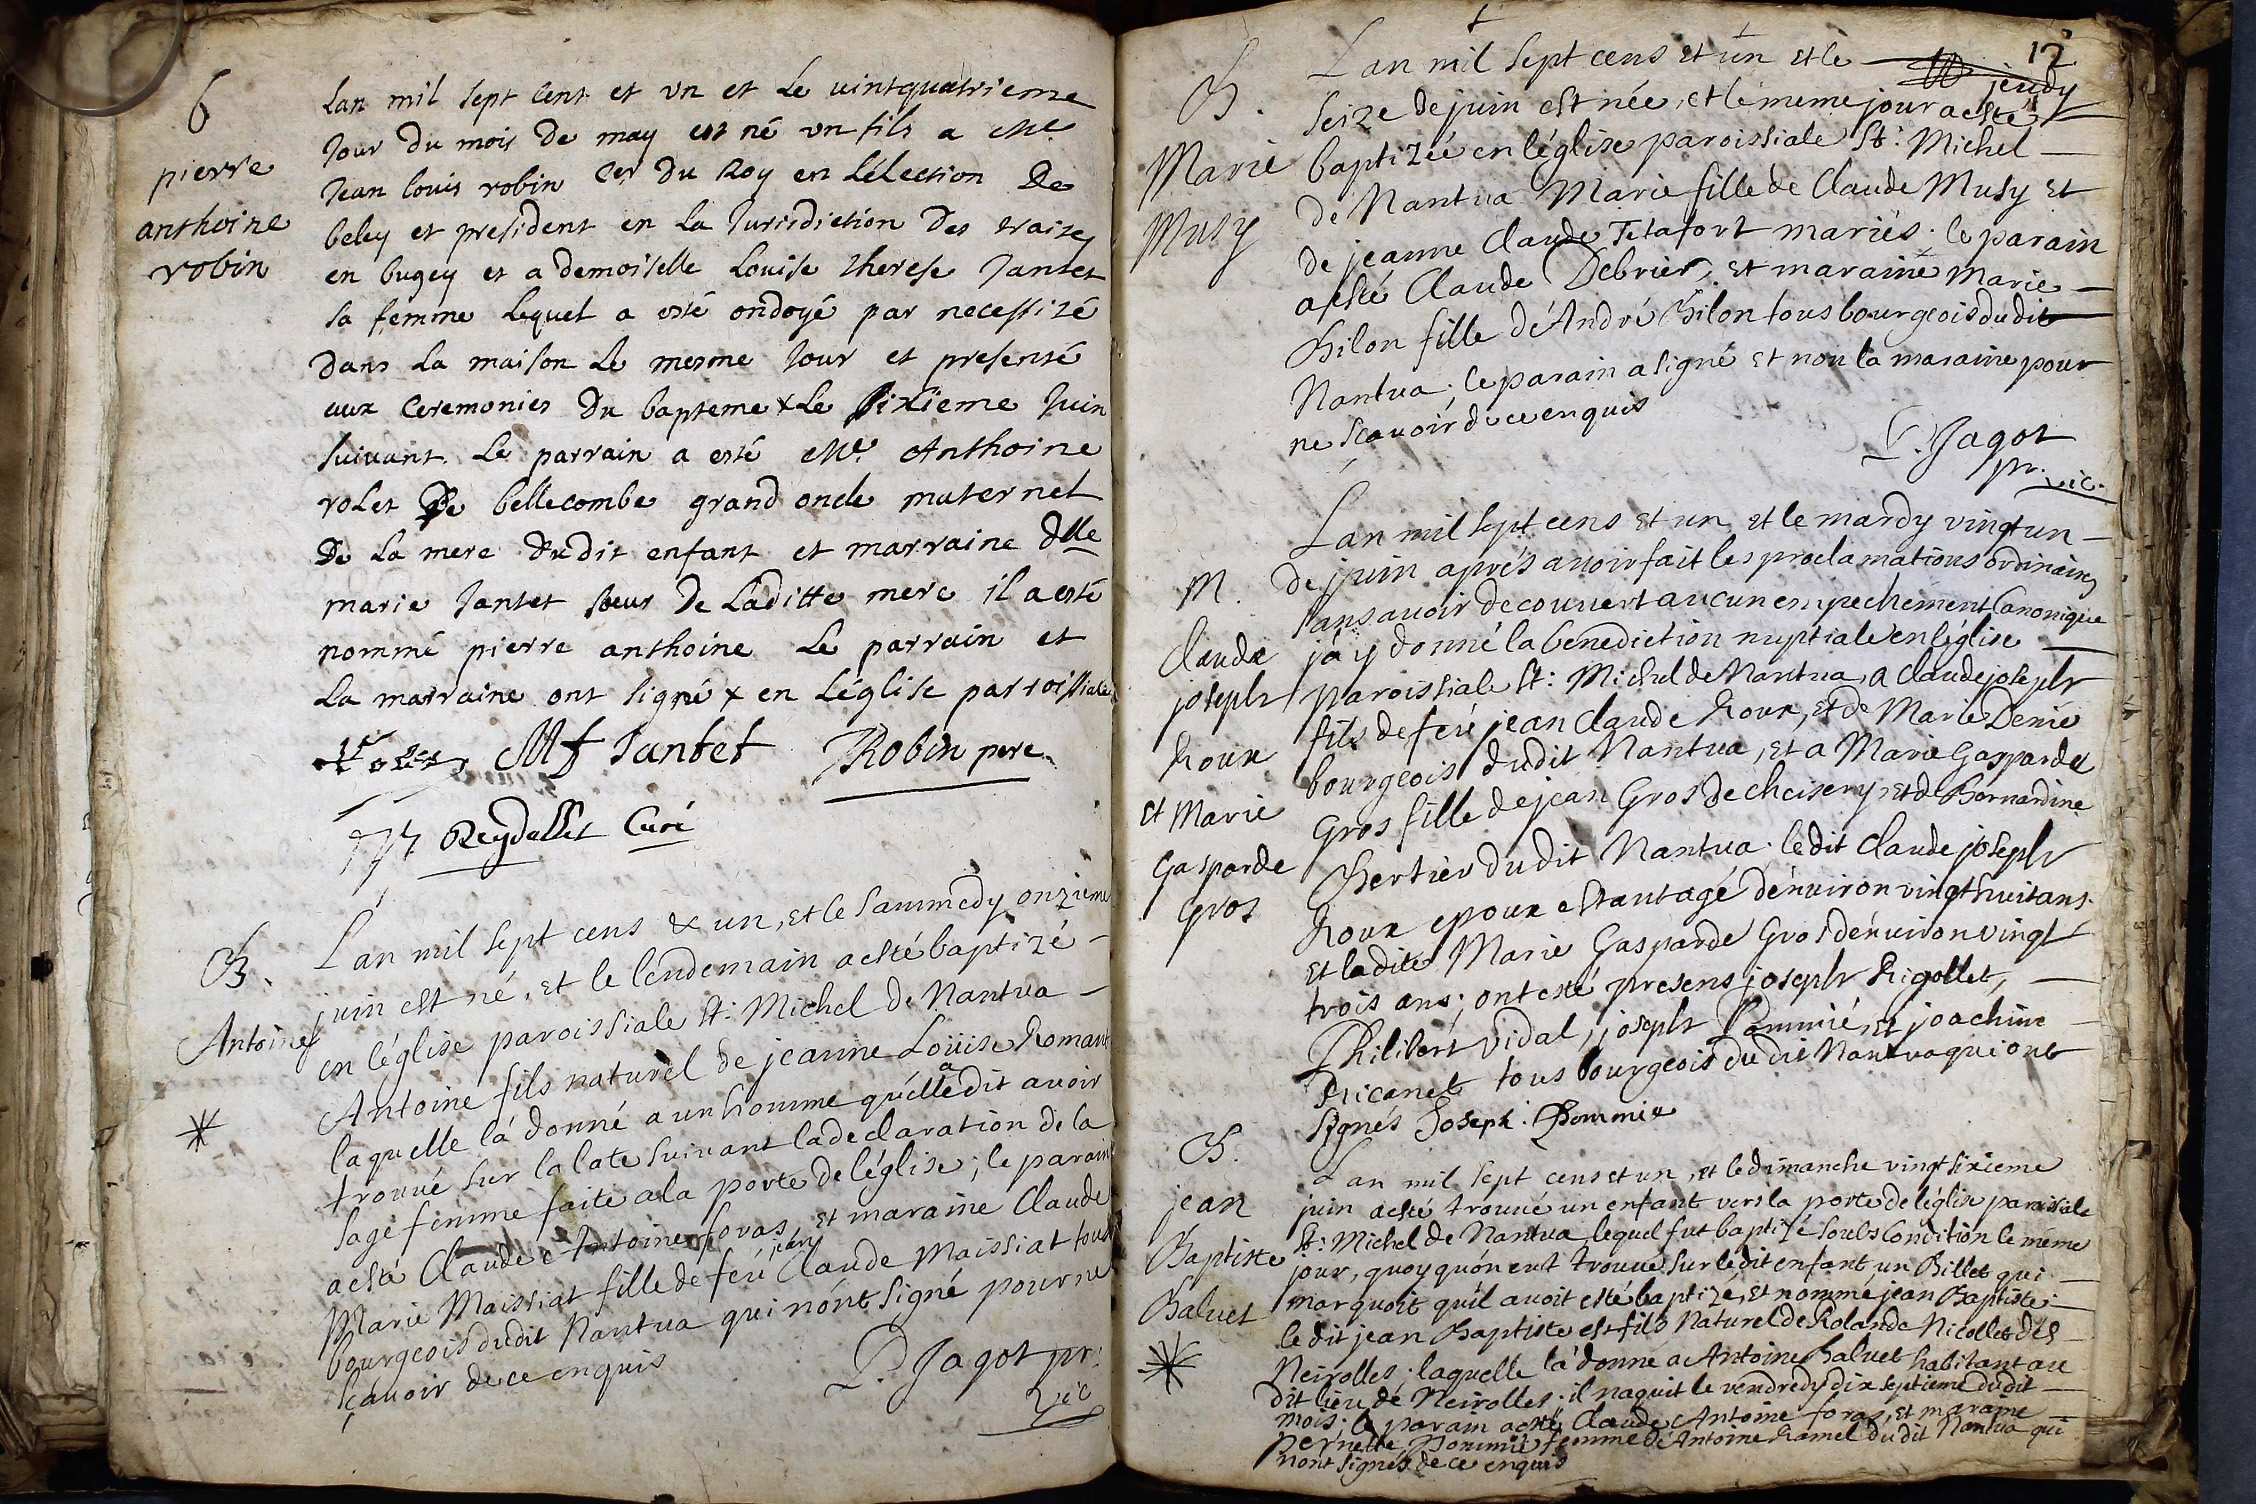 6
pierre
anthoine
robin
Lan mil sept cent et vn et Le uintquatrieme
Jour du mois de may est né vn fils a Mr.
Jean louis robin Cer du Roy en Lélection de
beley et president en la Jurisdiction des traites
en bugey et a demoiselle Louise therese Jantet
sa femme Lequel a esté ondoyé par necessité
dans La maison Le mesme Jour et presenté
aux Ceremonies du bapteme x Le sixieme Juin
suiuant. Le parrain a esté Mr. Anthoine
rolet De bellecombe grand oncle maternel
De La mere dudit enfant et marraine dlle
marie Jantet sœur De Laditte mere il a esté
nommé pierre anthoine Le parrain et
La marraine ont signé x en Léglise parroissiale
Mt Jantet Robin pere
Reydellet Curé
B.
Antoine
*
Lan mil sept cens & un, et le sammedy onzieme
juin est né, et le lendemain a esté baptizé
en léglise paroissiale St: Michel de Nantua
Antoine fils naturel de jeanne Loüise Romant
laquelle lá donné a un homme quélle a dit auoir
trouué sur la late suiuant la declaration de la
sage femme faite a la porte de léglise; le parain
a esté Claude Antoine foras, et maraine Claude
Marie Maissiat fille de feu jean Claude Maissiat tous
bourgeois dudit Nantua qui nónt signé pour ne
sçauoir de ce enquis
P. Jagot pr:
vic
12
B.
Marie
Musy
Lan mil sept cens et un et le jeudy
seize de juin est née, et le meme jour a esté
baptizeé en léglise paroissiale St: Michel
de Nantua Marie fille de Claude Musy et
de jeanne Claude Tetafort mariés. le parain
a esté Claude Debrier, et maraine Marie
Bilon fille dé André Bilon tous bourgeois dudit
Nantua; le parain a signé et non la maraine pour
ne sçauoir de ce enquis
P. Jagot
pr. vic.
M.
Claude
joseph
Roux
et Marie
Gasparde
Gros
Lan mil sept cens et un et le mardy vingt un
de juin aprés auoir fait les proclamations ordinaires
sans auoir decouuert aucun empechement Canonique
jáy donné la benediction nuptiale en léglise
paroissiale St: Michel de Nantua, a Claude joseph
fils de feu jean Claude Roux, et de Marie Denié
bourgeois dudit Nantua, et a Marie Gasparde
Gros fille de jean Gros de cheisery, et de Bernardine
Bertier dudit Nantua. ledit Claude joseph
Roux epoux estant agé dénuiron vingt huit ans.
et ladite Marie Gasparde Gros dénuiron vingt
trois ans; ont esté presens joseph Rigollet,
Philibert Vidal, joseph Pommié, et joachim
Ricanet tous bourgeois dudit Nantua qui ont
signés Joseph. Pommie
B.
jean
Baptiste
Baluet
*
Lan mil sept cens et un, et le dimanche vingt sixieme
juin a esté trouué un enfant vers la porte de léglise paroissiale
St: Michel de Nantua, lequel fut baptizé soubs Condition le méme
jour, quoy quón eut trouué sur ledit enfant un Billet qui
marquoit quil auoit esté baptizé, et nommé jean Baptiste
le dit jean Baptiste est fils Naturel de Rolande Nicollet des
Neirolles; laquelle lá donné a Antoine Baluet habitant au
dit lieu de Neirolles; il naquit le vendredy dix septieme dudit
mois. le parain a esté Claude Antoine foras, et maraine
Pernette Pommié femme dé Antoine Ramel dudit Nantua qui
nont signés de ce enquis